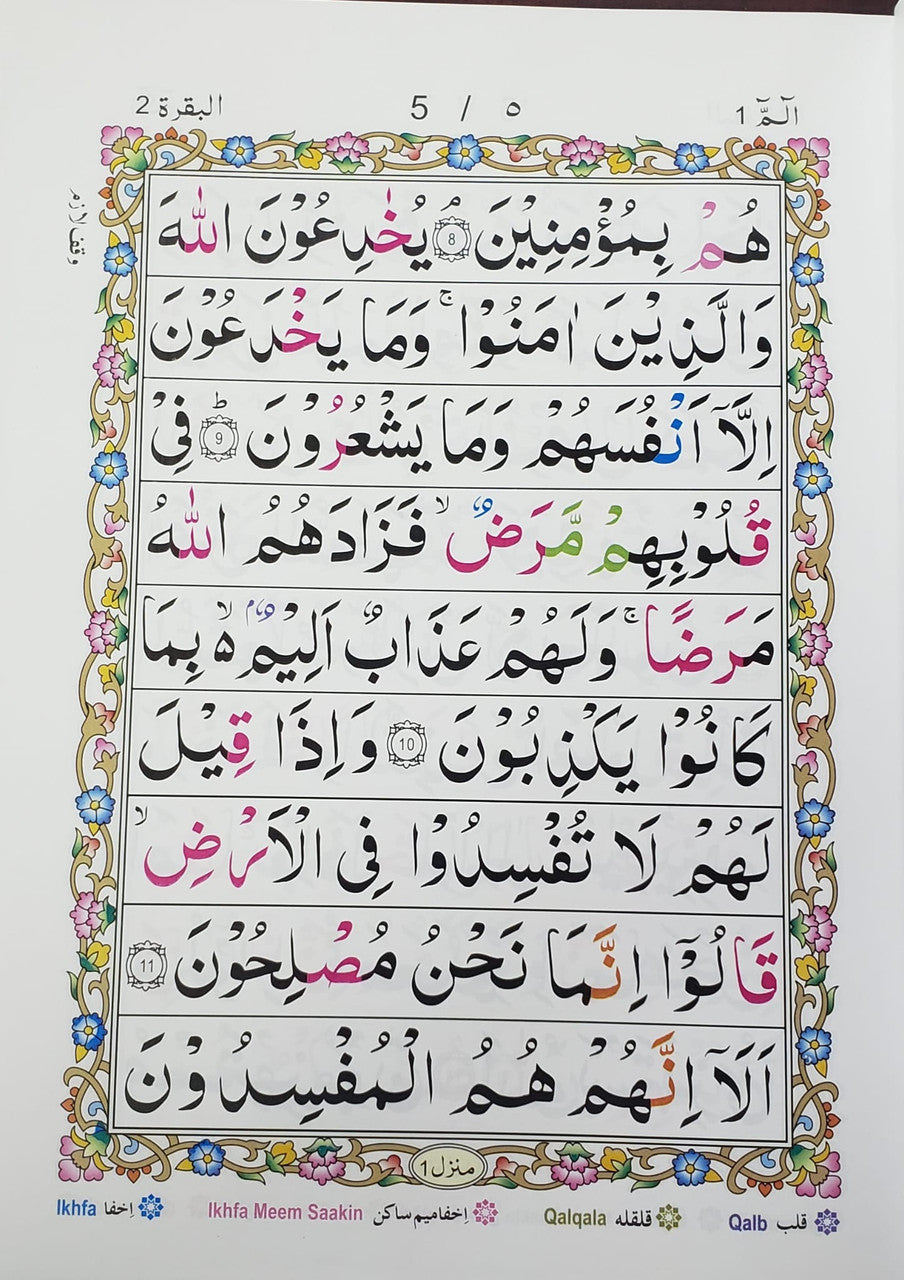 الٓمّٓ 1
5 / ٥
البقرة 2
وقف لازم
هُمْ بِمُؤْمِنِيْنَ ۘ 8 يُخٰدِعُوْنَ اللّٰهَ
وَالَّذِيْنَ اٰمَنُوْا ۚ وَمَا يَخْدَعُوْنَ
اِلَّاۤ اَنْفُسَهُمْ وَمَا يَشْعُرُوْنَ ؕ 9 فِيْ
قُلُوْبِهِمْ مَّرَضٌ ۙ فَزَادَهُمُ اللّٰهُ
مَرَضًا ۚ وَلَهُمْ عَذَابٌ اَلِيْمٌۢ ۵ ۙ بِمَا
كَانُوْا يَكْذِبُوْنَ 10 وَاِذَا قِيْلَ
لَهُمْ لَا تُفْسِدُوْا فِى الْاَرْضِ ۙ
قَالُوْۤا اِنَّمَا نَحْنُ مُصْلِحُوْنَ 11
اَلَاۤ اِنَّهُمْ هُمُ الْمُفْسِدُوْنَ
منزل 1
Ikhfa اِخفا Ikhfa Meem Saakin اِخفا میم ساکن Qalqala قلقله Qalb قلب